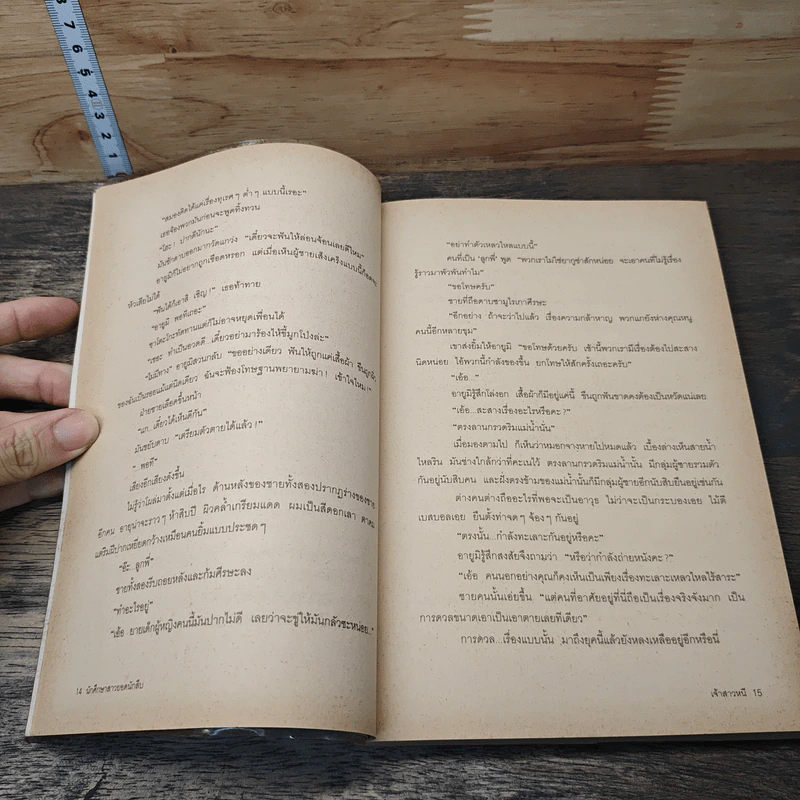 7 6 5 4 3 2 1
"สมองคิดได้แต่เรื่องทุเรศๆ ต่ำๆ แบบนี้เรอะ"
เธอจ้องพวกมันก่อนจะพูดทิ้งทวน
"โฮะ! ปากดีนักนะ"
มันชักดาบออกมากวัดแกว่ง "เดี๋ยวจะฟันให้ล่อนจ้อนเลยดีไหม"
อายูมิก็ไม่อยากถูกเชือดหรอก แต่เมื่อเห็นผู้ชายเส็งเคร็งแบบนี้ก็อดจะ
หัวเสียไม่ได้
"ฟันได้ก็เอาสิ เชิญ!" เธอท้าทาย
"อายูมิ พอทีเถอะ"
ซาโตะโกะทัดทานแต่ก็ไม่อาจหยุดเพื่อนได้
"เชอะ ทำเป็นอวดดี เดี๋ยวอย่ามาร้องไห้ขี้มูกโป่งล่ะ"
"ไม่มีทาง" อายูมิสวนกลับ "ขออย่างเดียว ฟันให้ถูกแค่เสื้อผ้า ขืนถูกผิว
ของฉันเป็นรอยแม้แต่นิดเดียว ฉันจะฟ้องโทษฐานพยายามฆ่า! เข้าใจไหม!"
ฝ่ายชายเลือดขึ้นหน้า
"แก...เดี๋ยวได้เห็นดีกัน"
มันขยับดาบ "เตรียมตัวตายได้แล้ว!"
"พอที"
เสียงอีกเสียงดังขึ้น
ไม่รู้ว่าโผล่มาตั้งแต่เมื่อไร ด้านหลังของชายทั้งสองปรากฏร่างของชาย
อีกคน อายุน่าจะราวๆ ห้าสิบปี ผิวคล้ำเกรียมแดด ผมเป็นสีดอกเลา ตาคม
แต่ริมฝีปากเหยียดกว้างเหมือนคนยิ้มแบบประชดๆ
"อ๊ะ ลูกพี่"
ชายทั้งสองรีบถอยหลังและก้มศีรษะลง
"ทำอะไรอยู่"
"เอ้อ ยายเด็กผู้หญิงคนนี้มันปากไม่ดี เลยว่าจะขู่ให้มันกลัวซะหน่อย.."
14 นักศึกษาสาวยอดนักสืบ
"อย่าทำตัวเหลวไหลแบบนี้"
คนที่เป็น 'ลูกพี่' พูด "พวกเราไม่ใช่ยากูซ่าสักหน่อย จะเอาคนที่ไม่รู้เรื่อง
รู้ราวมาพัวพันทำไม"
"ขอโทษครับ"
ชายที่ถือดาบซามูไรเกาศีรษะ
"อีกอย่าง ถ้าจะว่าไปแล้ว เรื่องความกล้าหาญ พวกแกยังห่างคุณหนู
คนนี้อีกหลายขุม"
เขาส่งยิ้มให้อายูมิ "ขอโทษด้วยครับ เช้านี้พวกเรามีเรื่องต้องไปสะสาง
นิดหน่อย ไอ้พวกนี้กำลังของขึ้น ยกโทษให้สักครั้งเถอะครับ"
"เอ้อ..."
อายูมิรู้สึกโล่งอก เสื้อผ้าก็มีอยู่แค่นี้ ขืนถูกฟันขาดคงต้องเป็นหวัดแน่เลย
"เอ้อ...สะสางเรื่องอะไรหรือคะ?"
"ตรงลานกรวดริมแม่น้ำนั่น"
เมื่อมองตามไป ก็เห็นว่าหมอกจางหายไปหมดแล้ว เบื้องล่างเห็นสายน้ำ
ไหลริน มันช่างใกล้กว่าที่คะเนไว้ ตรงลานกรวดริมแม่น้ำนั้น มีกลุ่มผู้ชายรวมตัว
กันอยู่นับสิบคน และฝั่งตรงข้ามของแม่น้ำนั้นก็มีกลุ่มผู้ชายอีกนับสิบยืนอยู่เช่นกัน
ต่างคนต่างถืออะไรที่พอจะเป็นอาวุธ ไม่ว่าจะเป็นกระบองเอย ไม้ตี
เบสบอลเอย ยืนตั้งท่าจดๆ จ้องๆ กันอยู่
"ตรงนั้น...กำลังทะเลาะกันอยู่หรือคะ"
อายูมิรู้สึกสงสัยจึงถามว่า "หรือว่ากำลังถ่ายหนังคะ?"
"เอ้อ คนนอกอย่างคุณก็คงเห็นเป็นเพียงเรื่องทะเลาะเหลวไหลไร้สาระ"
ชายคนนั้นเอ่ยขึ้น "แต่คนที่อาศัยอยู่ที่นี่ถือเป็นเรื่องจริงจังมาก เป็น
การดวลขนาดเอาเป็นเอาตายเลยทีเดียว"
การดวล...เรื่องแบบนั้น มาถึงยุคนี้แล้วยังหลงเหลืออยู่อีกหรือนี่
เจ้าสาวหนี 15